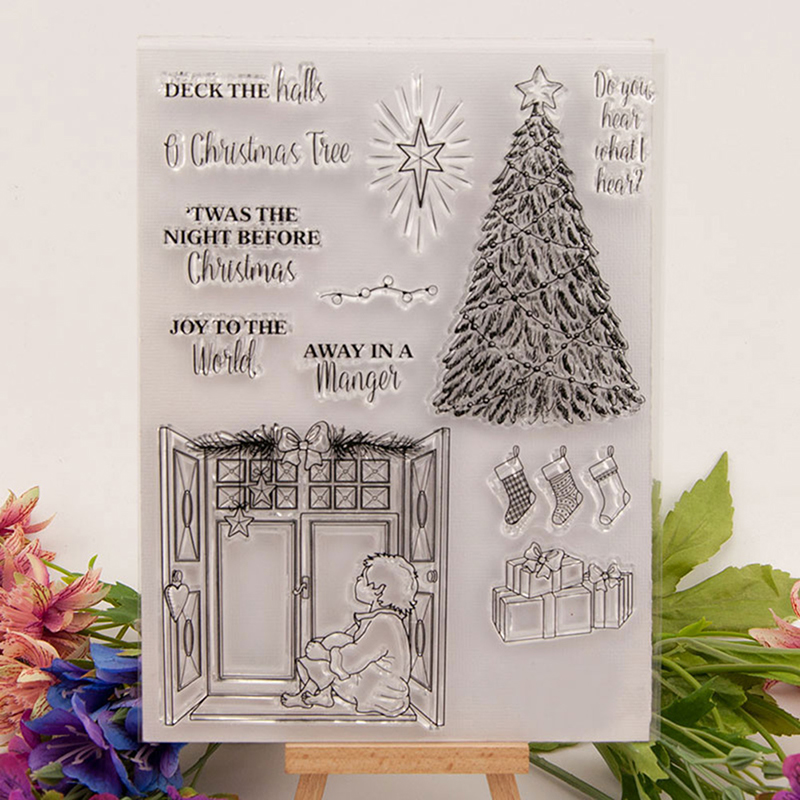 DECK THE halls
O Christmas Tree
'TWAS THE
NIGHT BEFORE
Christmas
JOY TO THE
World
AWAY IN A
Manger
Do you
hear
what I
hear?